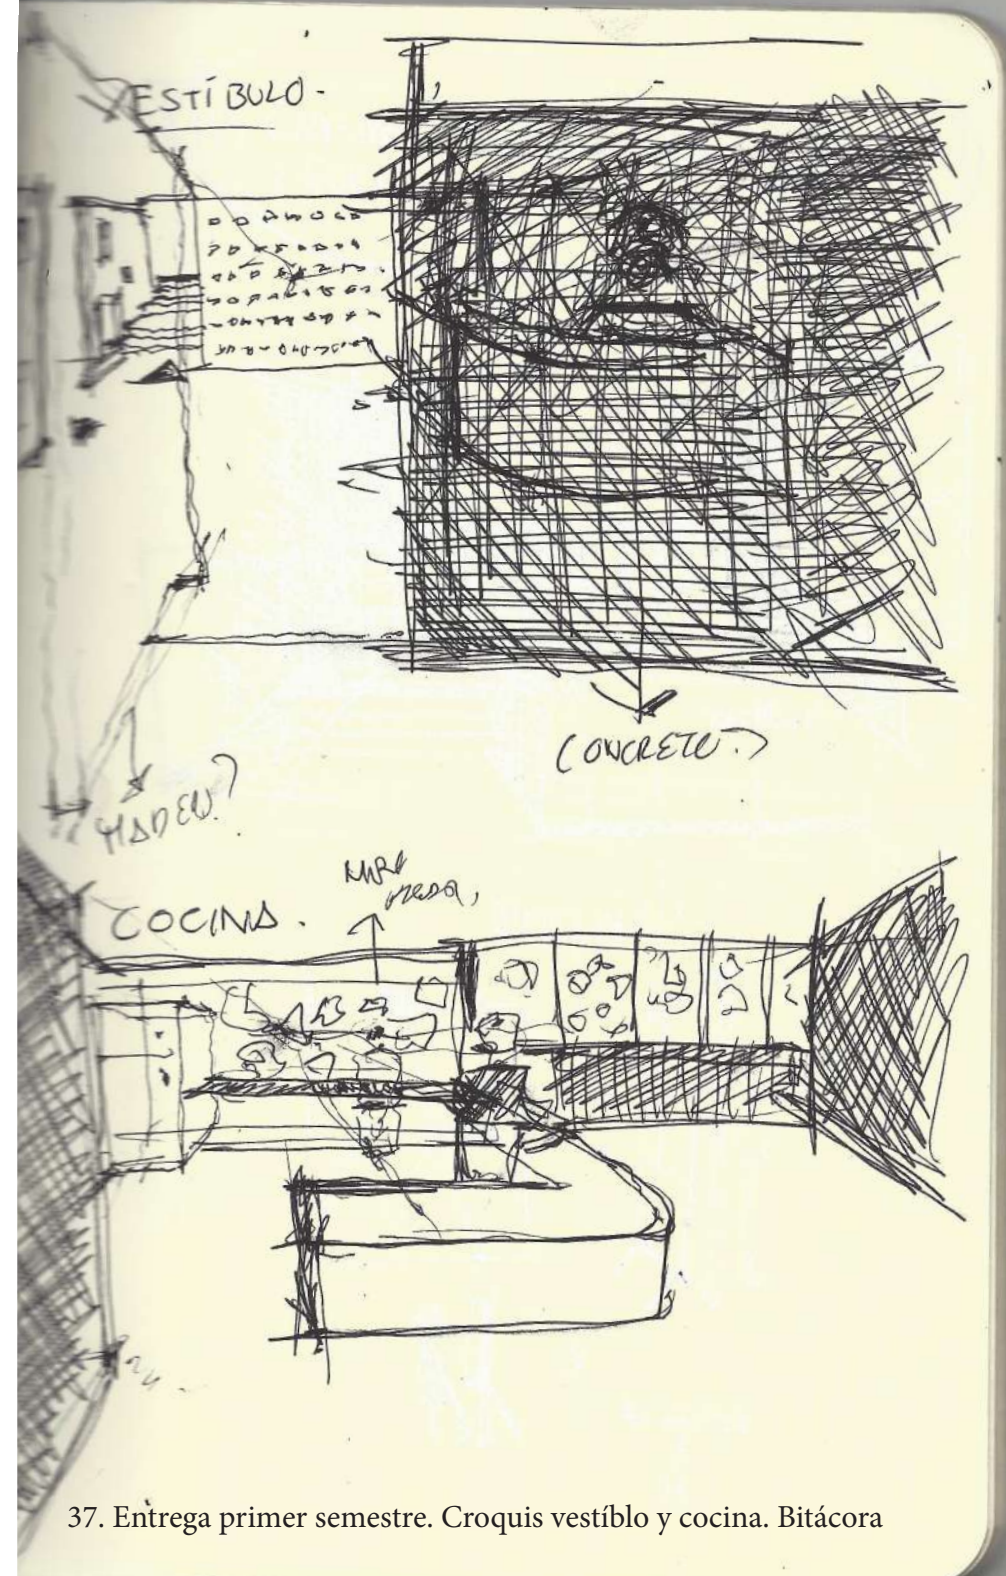 VESTÍBULO.
CONCRETO?
MADERA?
COCINA.
37. Entrega primer semestre. Croquis vestíblo y cocina. Bitácora